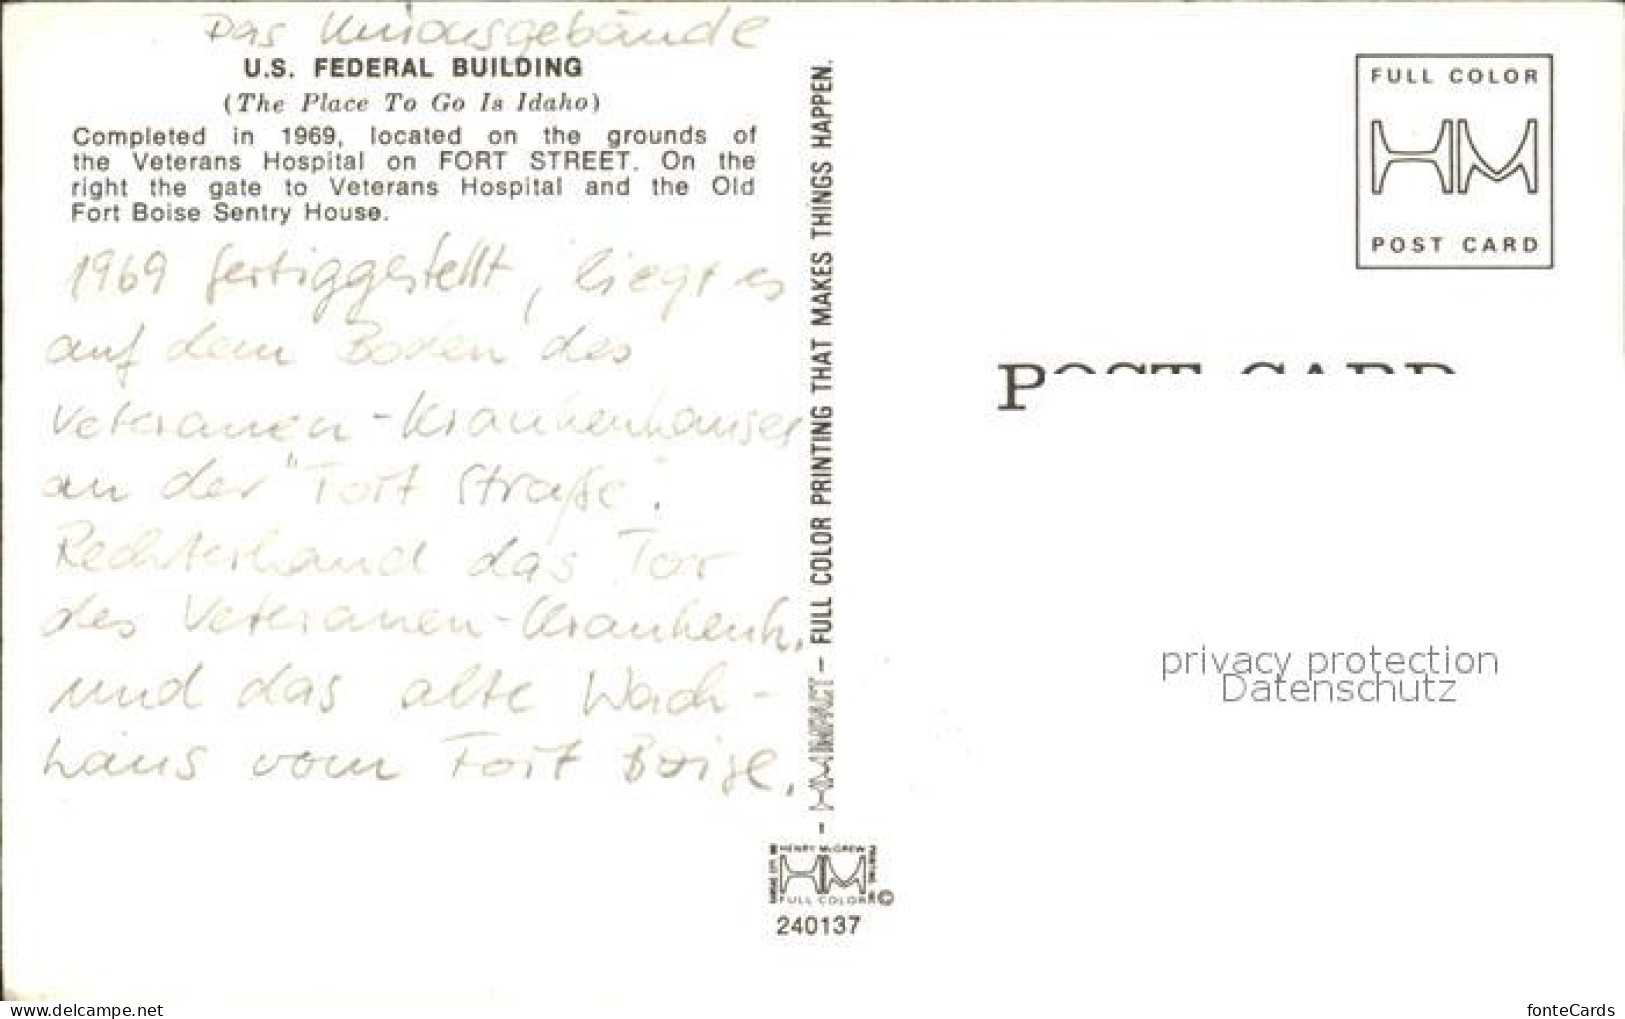 Das Unionsgebäude
U.S. FEDERAL BUILDING
(The Place To Go Is Idaho)
Completed in 1969, located on the grounds of
the Veterans Hospital on FORT STREET. On the
right the gate to Veterans Hospital and the Old
Fort Boise Sentry House.
1969 fertiggestellt, liegt es
auf dem Boden des
Veteranen-Krankenhauses
an der "Fort Straße.
Rechterhand das Tor
des Veteranen-Krankenh.
und das alte Wach-
haus vom Fort Boise.
HM IMPACT – FULL COLOR PRINTING THAT MAKES THINGS HAPPEN.
HENRY McGREW
PRINTING, INC
KANSAS CITY, MO
HM
FULL COLOR ©
240137
FULL COLOR
HM
POST CARD
POST CARD
privacy protection
Datenschutz
www.delcampe.net
fonteCards